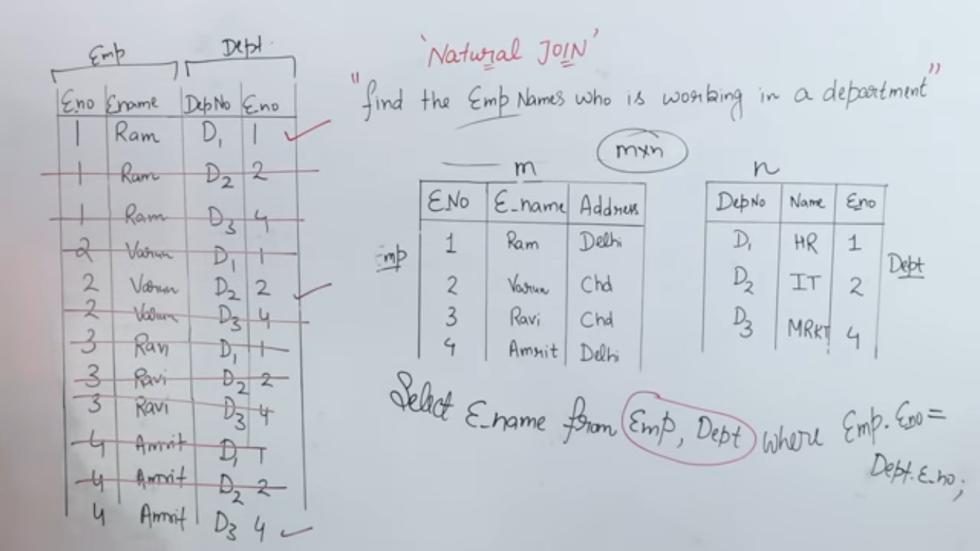 Emp Dept.
E.no Ename DepNo E.no
1 Ram D1 1
1 Ram D2 2
1 Ram D3 4
2 Varun D1 1
2 Varun D2 2
2 Varun D3 4
3 Ravi D1 1
3 Ravi D2 2
3 Ravi D3 4
4 Amrit D1 1
4 Amrit D2 2
4 Amrit D3 4
'Natural JOIN'
"find the Emp Names who is working in a department"
m×n
m
E.No E_name Address
1 Ram Delhi
2 Varun Chd
3 Ravi Chd
4 Amrit Delhi
Emp
n
DepNo Name Eno
D1 HR 1
D2 IT 2
D3 MRKT 4
Dept
Select E_name from Emp, Dept where Emp.Eno =
Dept.E_no;